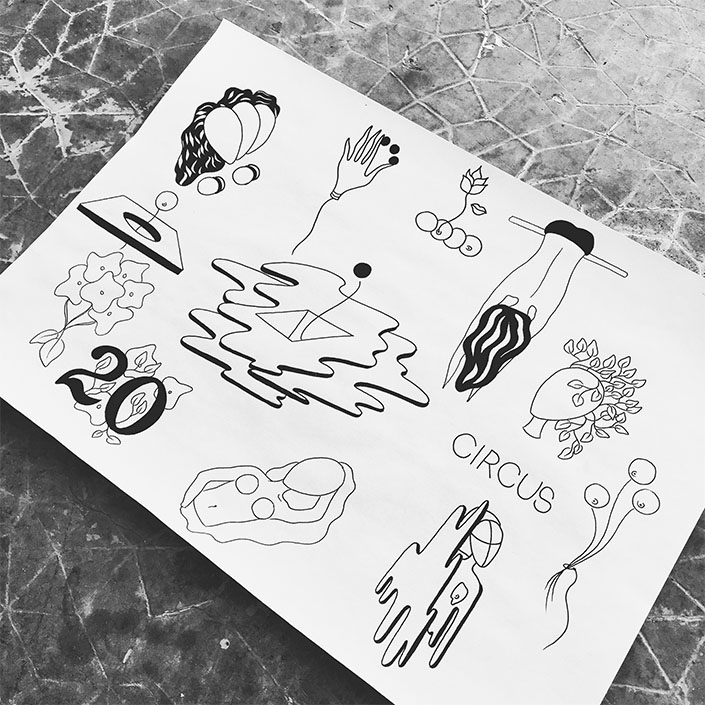 20
CIRCUS